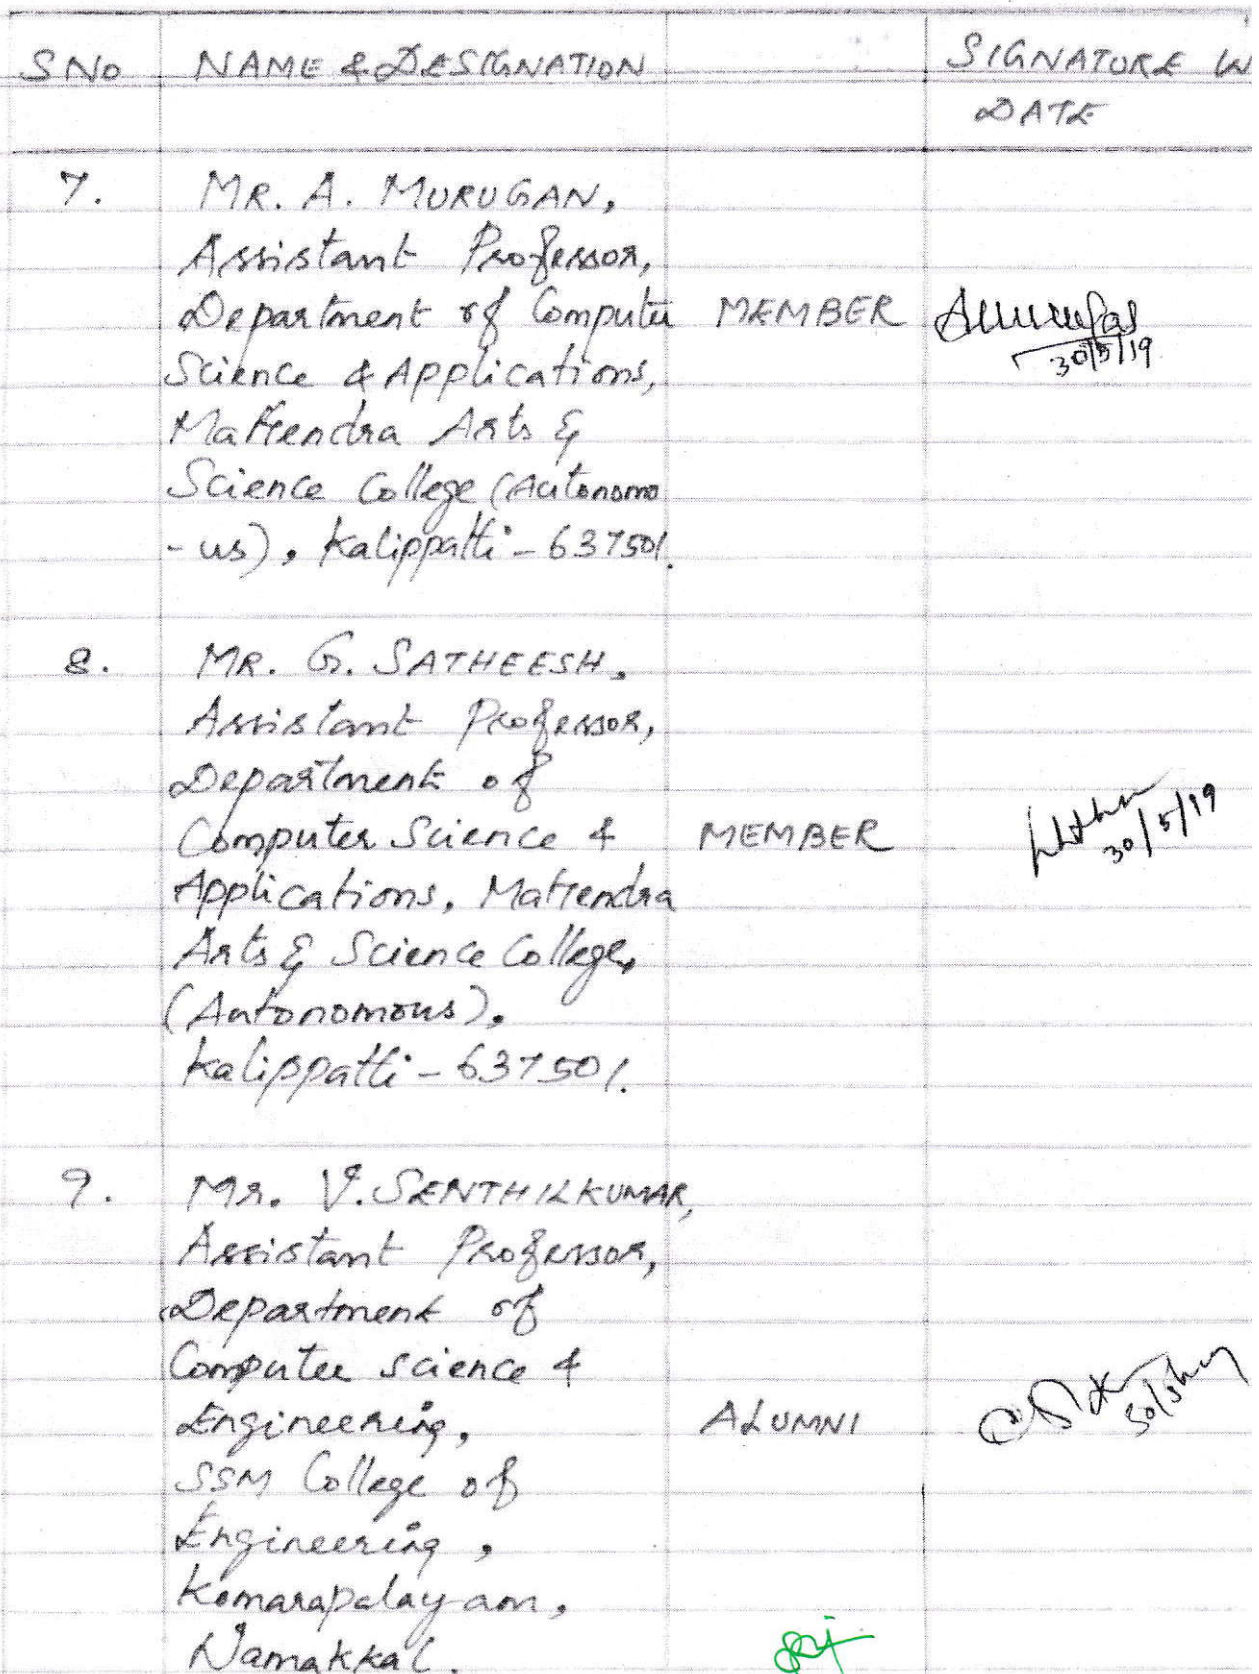 S NO NAME & DESIGNATION SIGNATURE W
DATE
7. MR. A. MURUGAN,
Assistant Professor,
Department of Computer MEMBER
30/5/19
Science & Applications,
Mahendra Arts &
Science College (Autonomo
-us), Kalippatti - 637501.
8. MR. G. SATHEESH,
Assistant Professor,
Department of
30/5/19
Computer Science & MEMBER
Applications, Mahendra
Arts & Science College,
(Autonomous),
Kalippatti - 637501.
9. Mr. V. SENTHILKUMAR,
Assistant Professor,
Department of
Computer science &
Engineering, ALUMNI
SSM College of
Engineering,
Komarapalayam,
Namakkal.